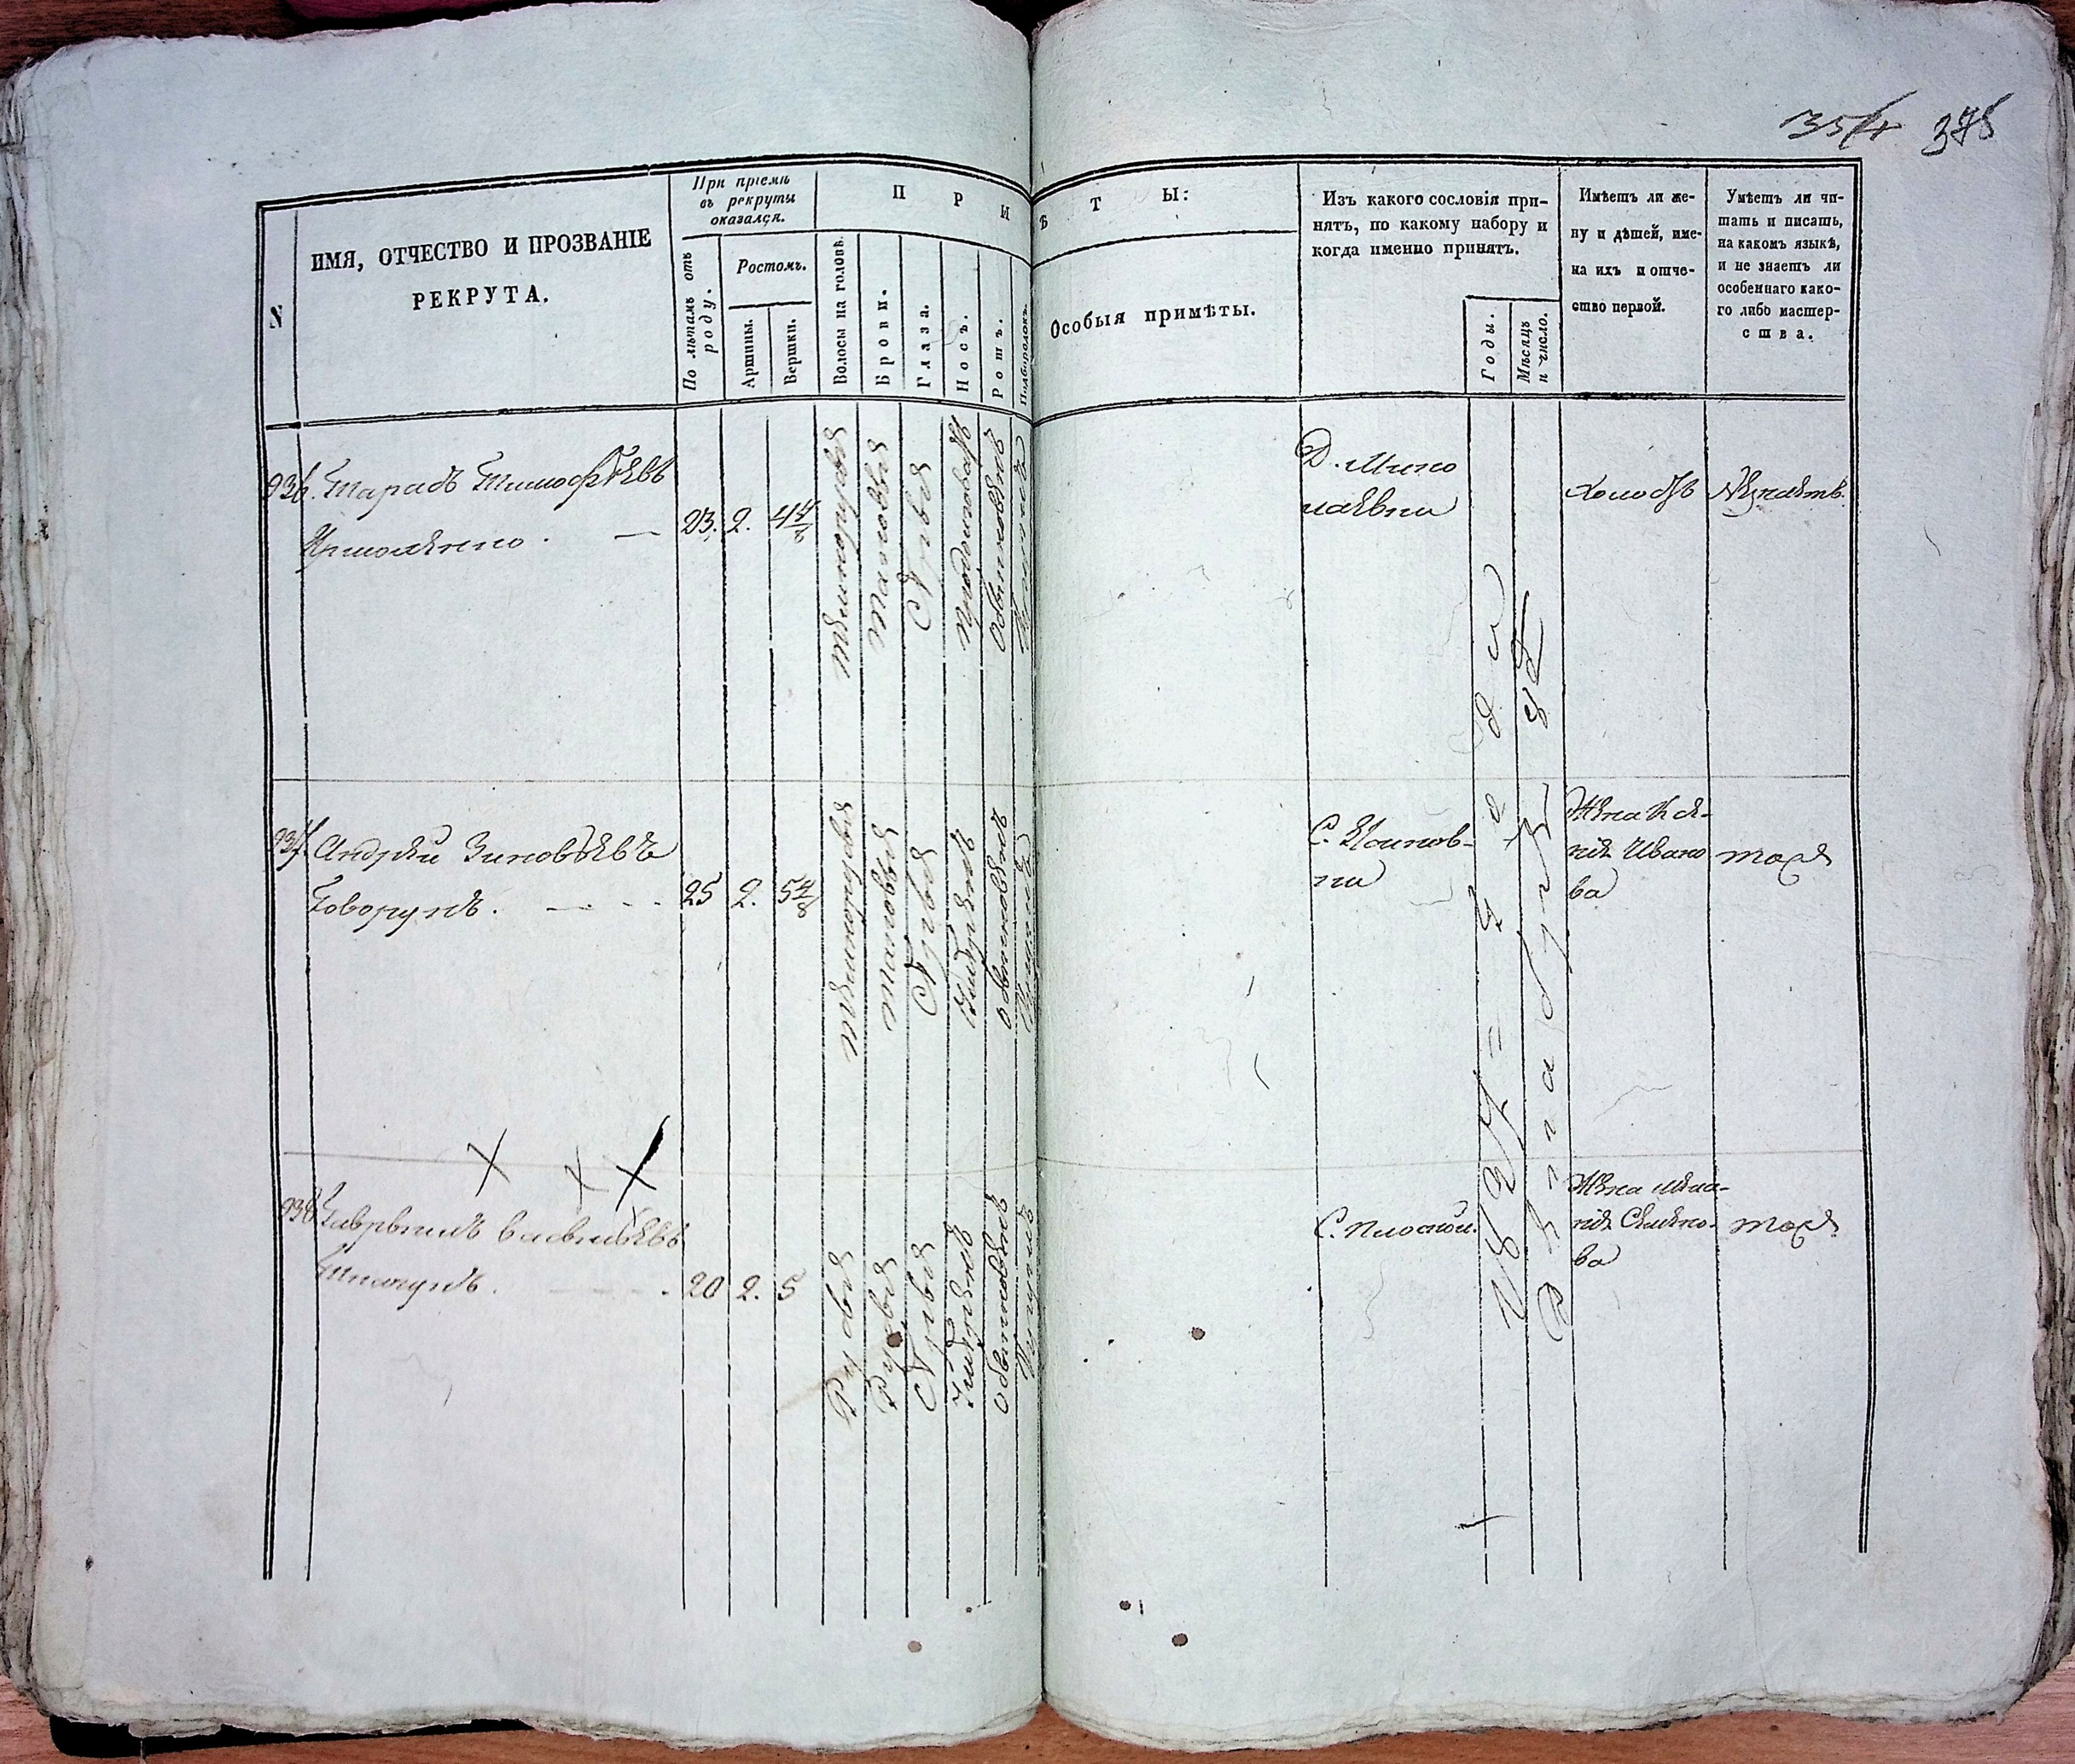 354 378
N
ИМЯ, ОТЧЕСТВО И ПРОЗВАНІЕ
РЕКРУТА.
При пріемѣ
въ рекруты
оказался.
По лѣтамъ отъ
роду.
Ростомъ.
Аршины.
Вершки.
П Р И
Волосы на головѣ.
Брови.
Глаза.
Носъ.
Ротъ.
Подбородокъ.
Ѣ Т Ы:
Особыя примѣты.
Изъ какого сословія при-
нятъ, по какому набору и
когда именно принятъ.
Годы.
Мѣсяцъ
и число.
Имѣетъ ли же-
ну и дѣтей, име-
на ихъ и отче-
ство первой.
Умѣетъ ли чи-
тать и писать,
на какомъ языкѣ,
и не знаетъ ли
особеннаго како-
го либо мастер-
ства.
936. Тарасъ Тимофѣевъ
23. 2. 4 4/8
темнорусыя
таковыя
Сѣрыя
продолговатъ
обыкновенъ
Д. Нико
лаевки
холостъ
Незнаетъ.
937. Андрей Зиновьевъ
Говорунъ.
25 2. 5 4/8
темнорусыя
таковыя
Сѣрыя
умѣренъ
обыкновенъ
С. Осинов-
ки
Жена Ксе-
нія Ивано
ва
тоже
938. Гаврыилъ васильевъ
20 2. 5
Русыя
Русыя
Сѣрыя
умѣренъ
обыкновенъ
С. Плоской.
Жена мела-
нія Семено-
ва
тоже
1827=
года